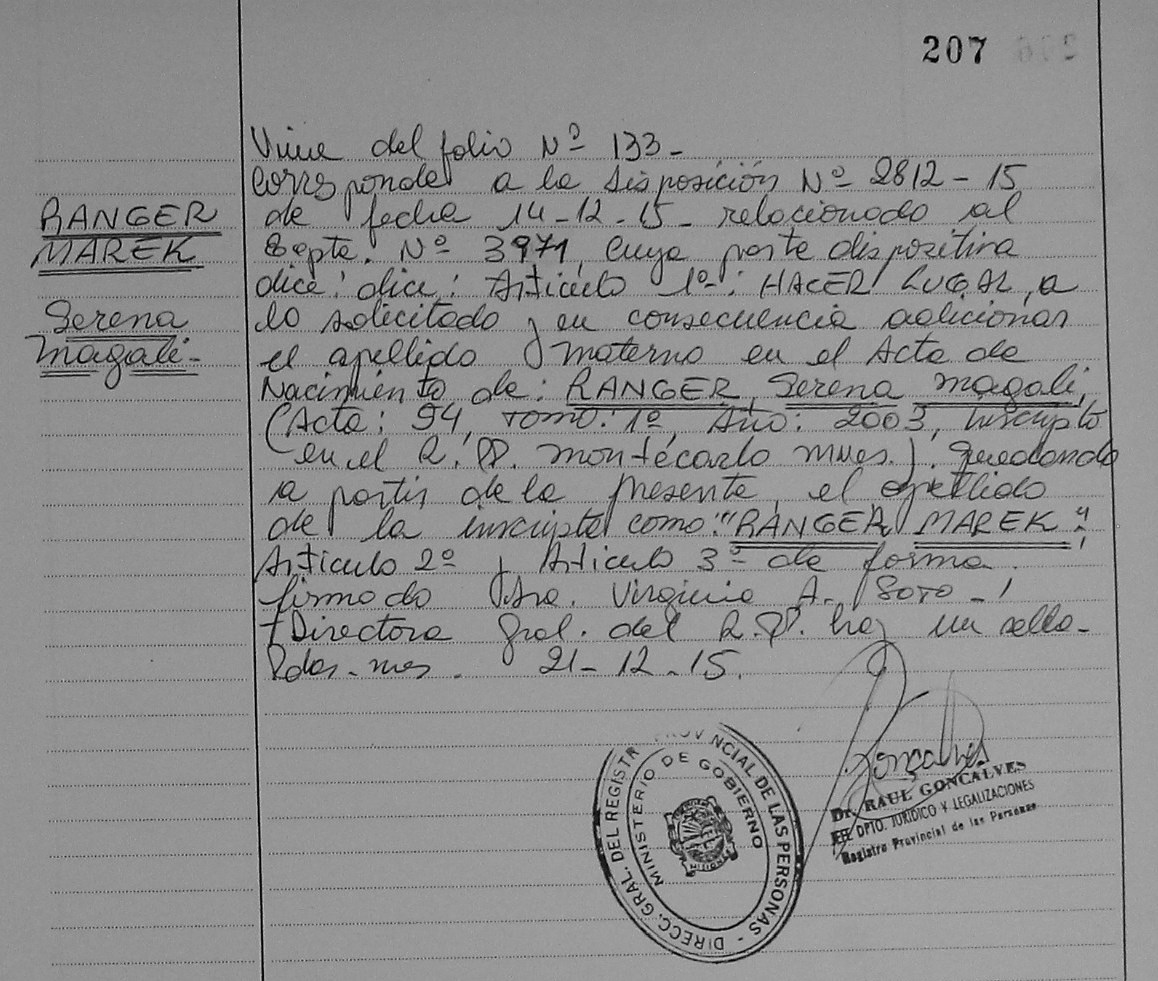 207
RANGER
MAREK
Serena
Magali-
Viene del folio Nº 133-
Corresponde a la disposición Nº 2812-15
de fecha 14-12-15- relacionado al
Expte. Nº 3971, Cuya parte dispositiva
dice: dice: Artículo 1º: HACER LUGAR, a
lo solicitado y en consecuencia adicionar
el apellido materno en el Acta de
Nacimiento de: RANGER, Serena Magali,
(Acta: 94, Tomo: 1º, Año: 2003, Inscripto
en el R.P. Montecarlo Mnes.). Quedando
a partir de la presente, el apellido
de la inscripta como: "RANGER MAREK"
Artículo 2º y Artículo 3º de forma.
firmado Dra. Virginia A. Soto-
Directora Gral. del R.P. hay un sello-
Pdas. mnes. 21-12-15.
DIRECC. GRAL. DEL REGISTR PROVINCIAL DE LAS PERSONAS -
MINISTERIO DE GOBIERNO
MISIONES
Goncalves
Dr. RAUL GONCALVES
JEFE DPTO. JURIDICO Y LEGALIZACIONES
Registro Provincial de las Personas